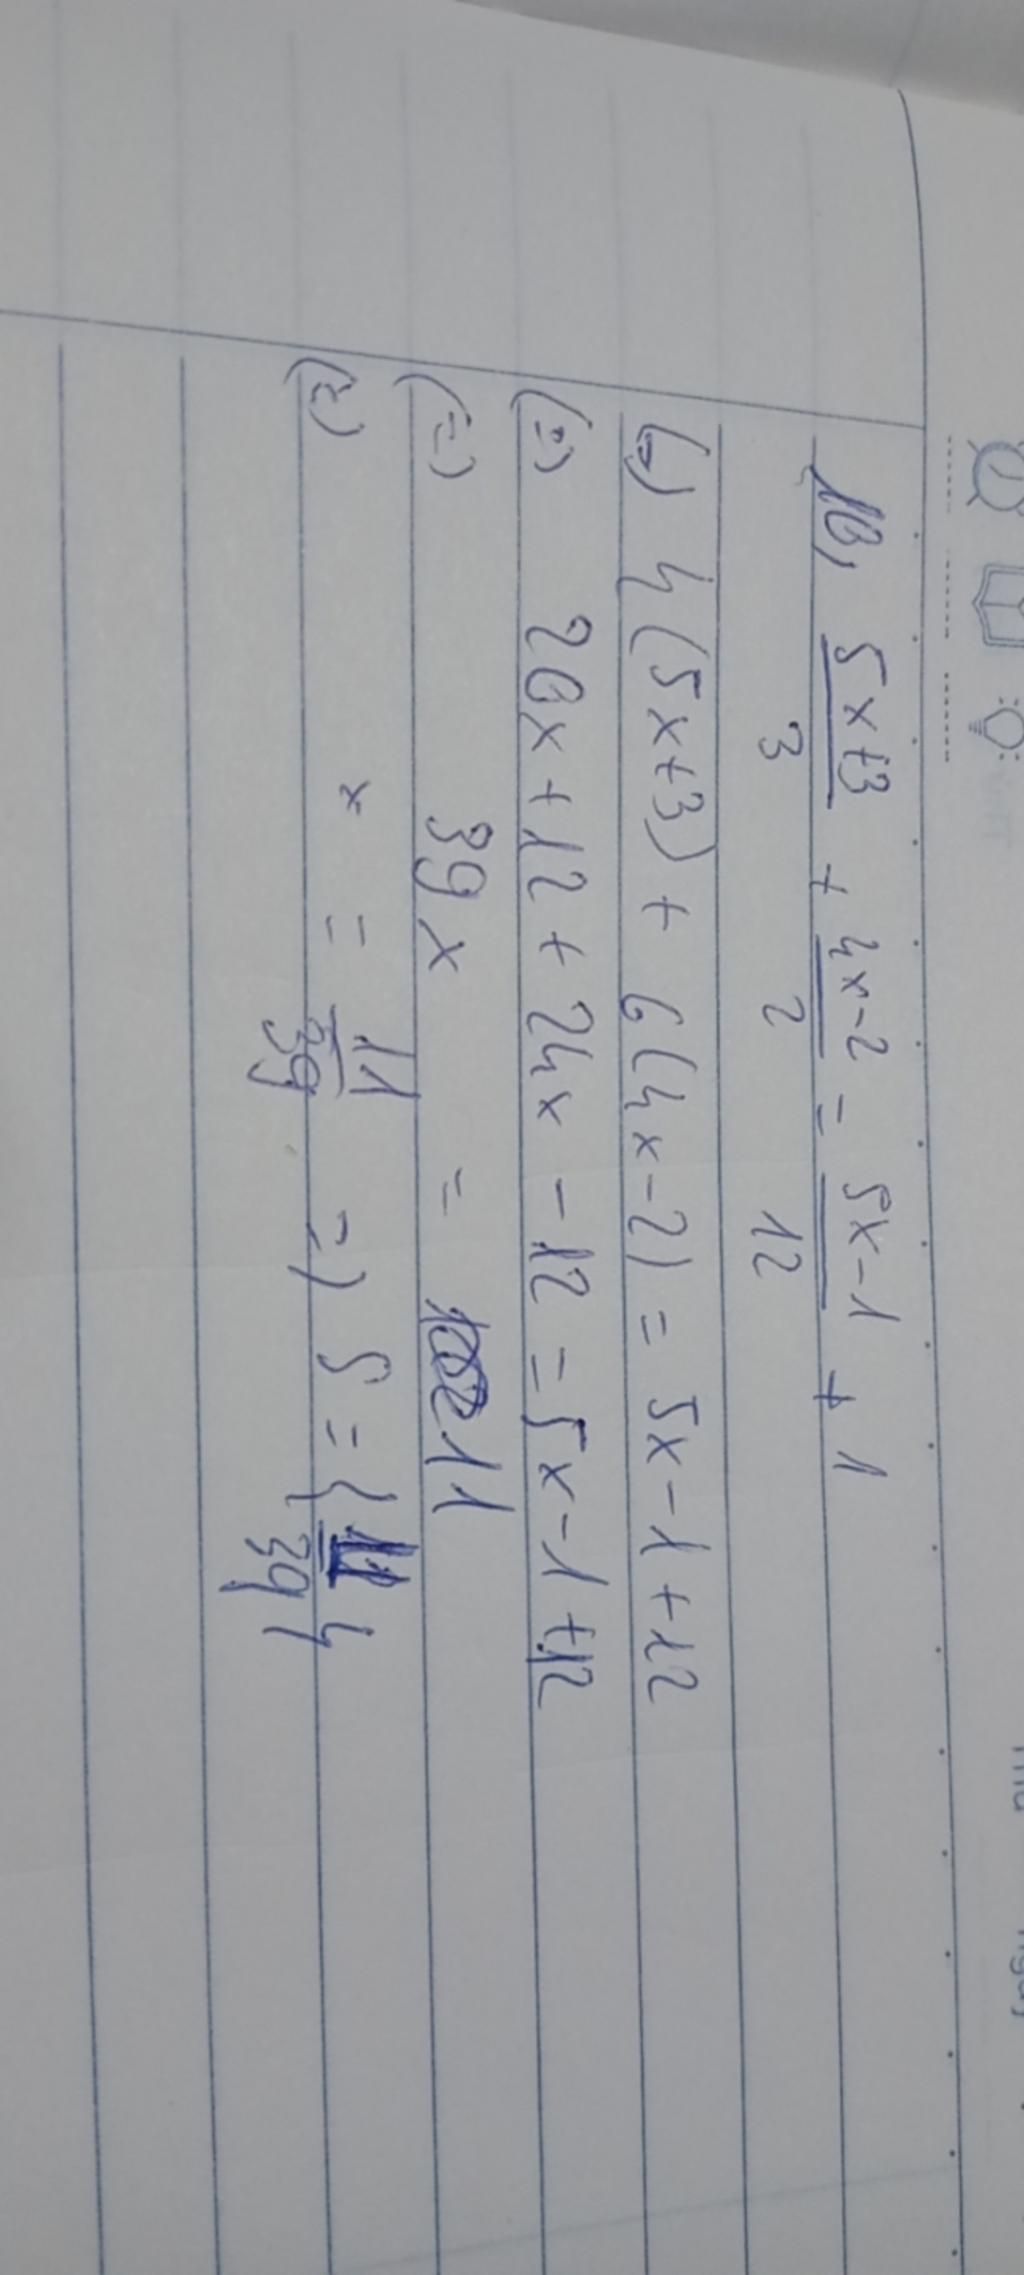 10, 5x+3 + 4x-2 = 5x-1 + 1
3 2 12
(=) 4(5x+3) + 6(4x-2) = 5x-1+12
(=) 20x+12 + 24x -12 = 5x-1+12
(=) 39x = 11
(=) x = 11/39 =) S = {11/39}